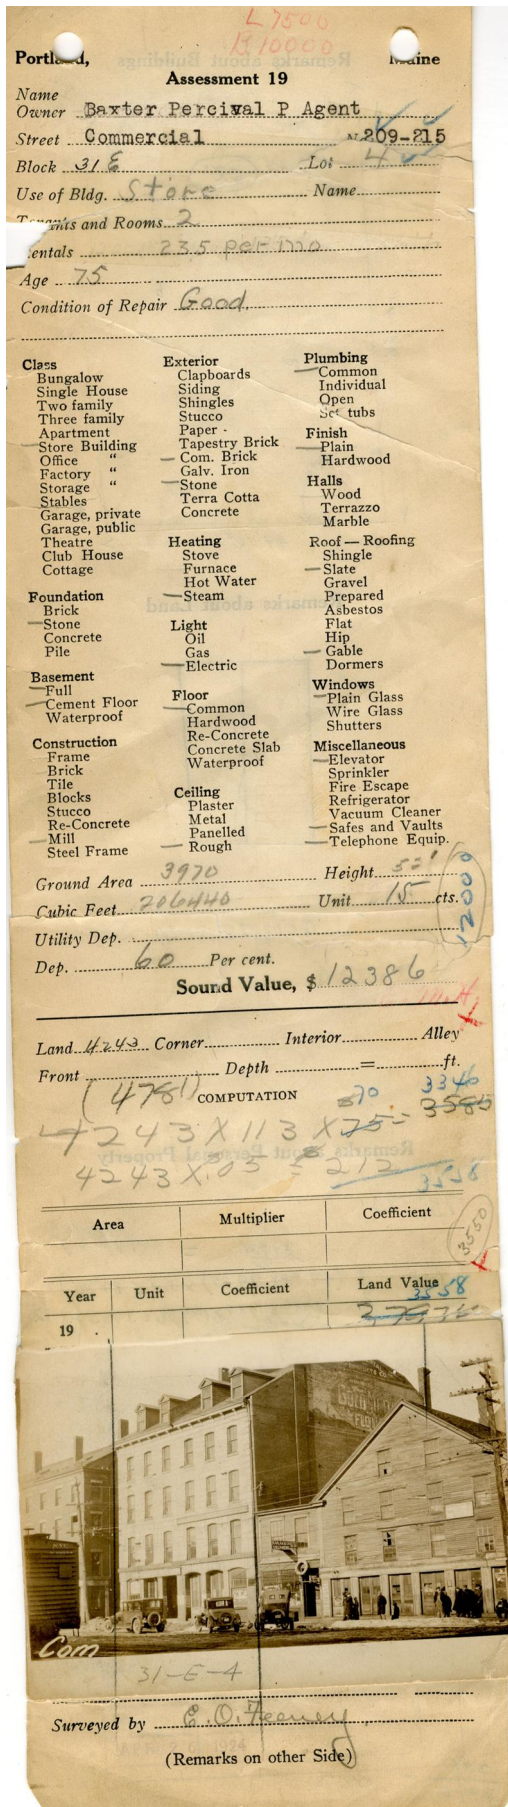 L 7500
B 10000
Portland, Maine
Assessment 19
Name
Owner Baxter Percival P Agent
Street Commercial No 209-215
Block 31 E Lot 4
Use of Bldg. Store Name
Tenants and Rooms 2
Rentals 235 per mo
Age 75
Condition of Repair Good
Class
Bungalow
Single House
Two family
Three family
Apartment
Store Building
Office "
Factory "
Storage "
Stables
Garage, private
Garage, public
Theatre
Club House
Cottage
Foundation
Brick
Stone
Concrete
Pile
Basement
Full
Cement Floor
Waterproof
Construction
Frame
Brick
Tile
Blocks
Stucco
Re-Concrete
Mill
Steel Frame
Exterior
Clapboards
Siding
Shingles
Stucco
Paper
Tapestry Brick
Com. Brick
Galv. Iron
Stone
Terra Cotta
Concrete
Heating
Stove
Furnace
Hot Water
Steam
Light
Oil
Gas
Electric
Floor
Common
Hardwood
Re-Concrete
Concrete Slab
Waterproof
Ceiling
Plaster
Metal
Panelled
Rough
Plumbing
Common
Individual
Open
Set tubs
Finish
Plain
Hardwood
Halls
Wood
Terrazzo
Marble
Roof — Roofing
Shingle
Slate
Gravel
Prepared
Asbestos
Flat
Hip
Gable
Dormers
Windows
Plain Glass
Wire Glass
Shutters
Miscellaneous
Elevator
Sprinkler
Fire Escape
Refrigerator
Vacuum Cleaner
Safes and Vaults
Telephone Equip.
Ground Area 3970 Height 52'
Cubic Feet 206440 Unit 15 cts.
12000
Utility Dep.
Dep. 60 Per cent.
Sound Value, $ 12386
Land 4243 Corner Interior Alley
Front Depth = ft.
(4781) COMPUTATION 70 3346
4243 X 113 X 75 = 3585
4243 X .05 = 212
3558
Area Multiplier Coefficient
3550
Year Unit Coefficient Land Value
3558
19
Com
31-E-4
Surveyed by E. O. Feeney
(Remarks on other Side)